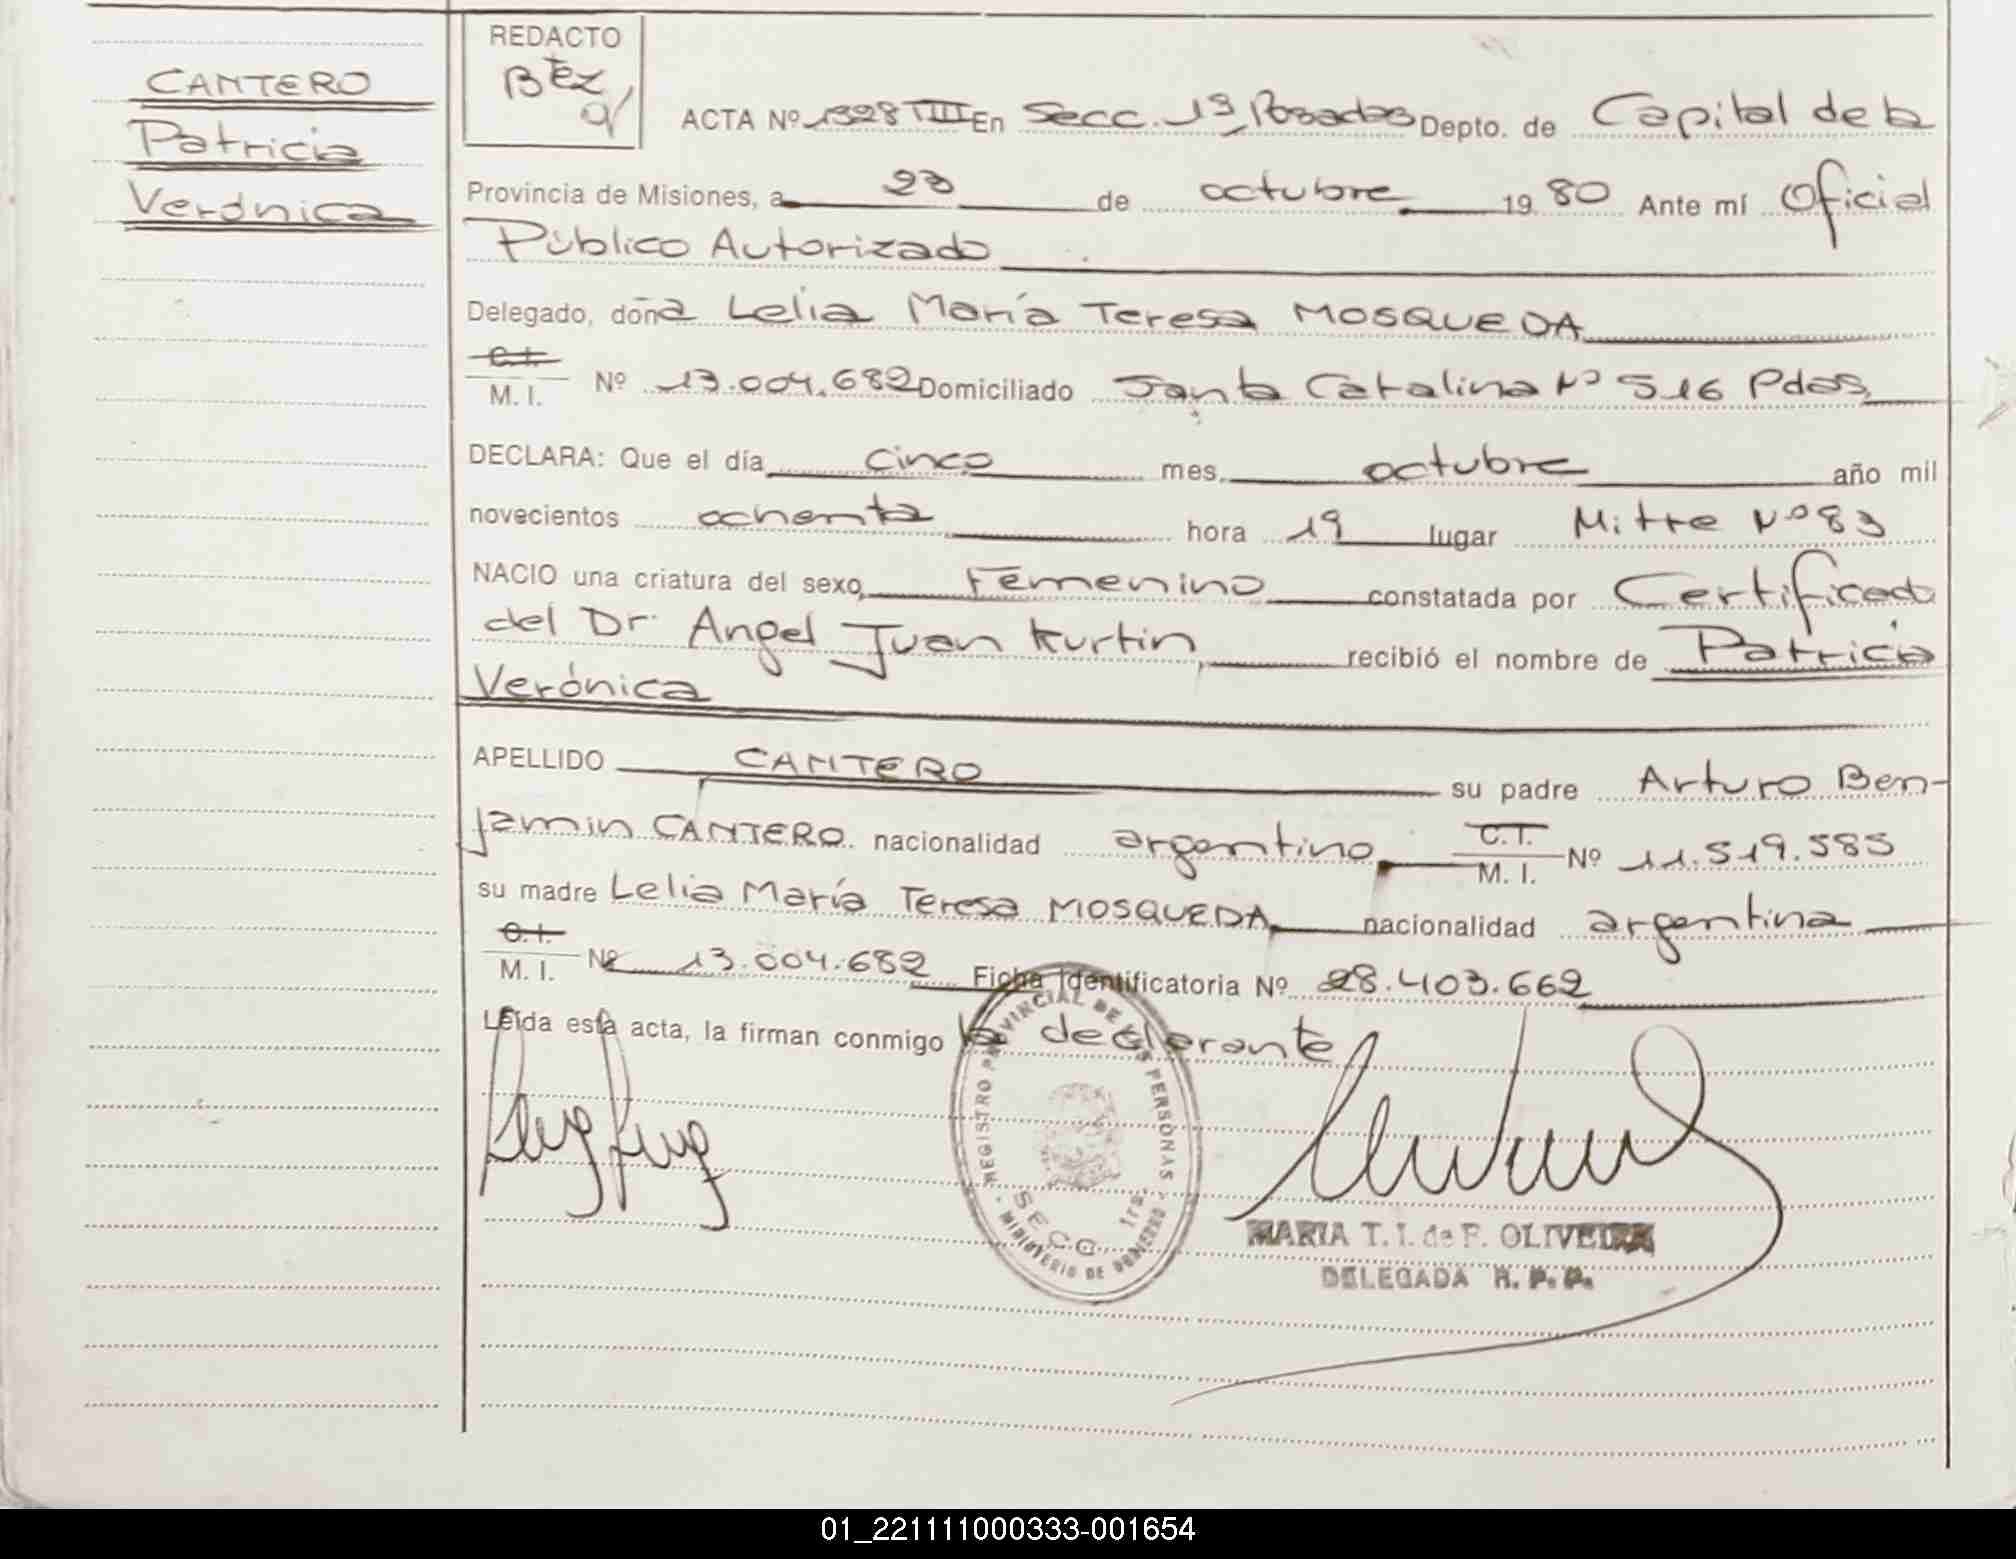 CANTERO
Patricia
Verónica
REDACTO
BTEZ
ACTA Nº 1328 TIII En Secc. 1ª Posadas Depto. de Capital de la
Provincia de Misiones, a 23 de octubre 1980 Ante mí Oficial
Público Autorizado
Delegado, doña Lelia María Teresa MOSQUEDA
C.I.
M. I. Nº 13.004.682 Domiciliado Santa Catalina Nº 516 Pdas
DECLARA: Que el día cinco mes octubre año mil
novecientos ochenta hora 19 lugar Mitre Nº 83
NACIO una criatura del sexo Femenino constatada por Certificado
del Dr. Angel Juan Kurtin, recibió el nombre de Patricia
Verónica
APELLIDO CANTERO su padre Arturo Ben-
jamin CANTERO nacionalidad argentino C.I.
M. I. Nº 11.519.585
su madre Lelia María Teresa MOSQUEDA nacionalidad argentina
C.I.
M. I. Nº 13.004.682 Ficha Identificatoria Nº 28.403.662
Leída esta acta, la firman conmigo la declarante
REGISTRO PROVINCIAL DE LAS PERSONAS
SECC. 1ra.
MINISTERIO DE GOBIERNO
MARIA T. I. de F. OLIVEIRA
DELEGADA R. P. P.
01_221111000333-001654